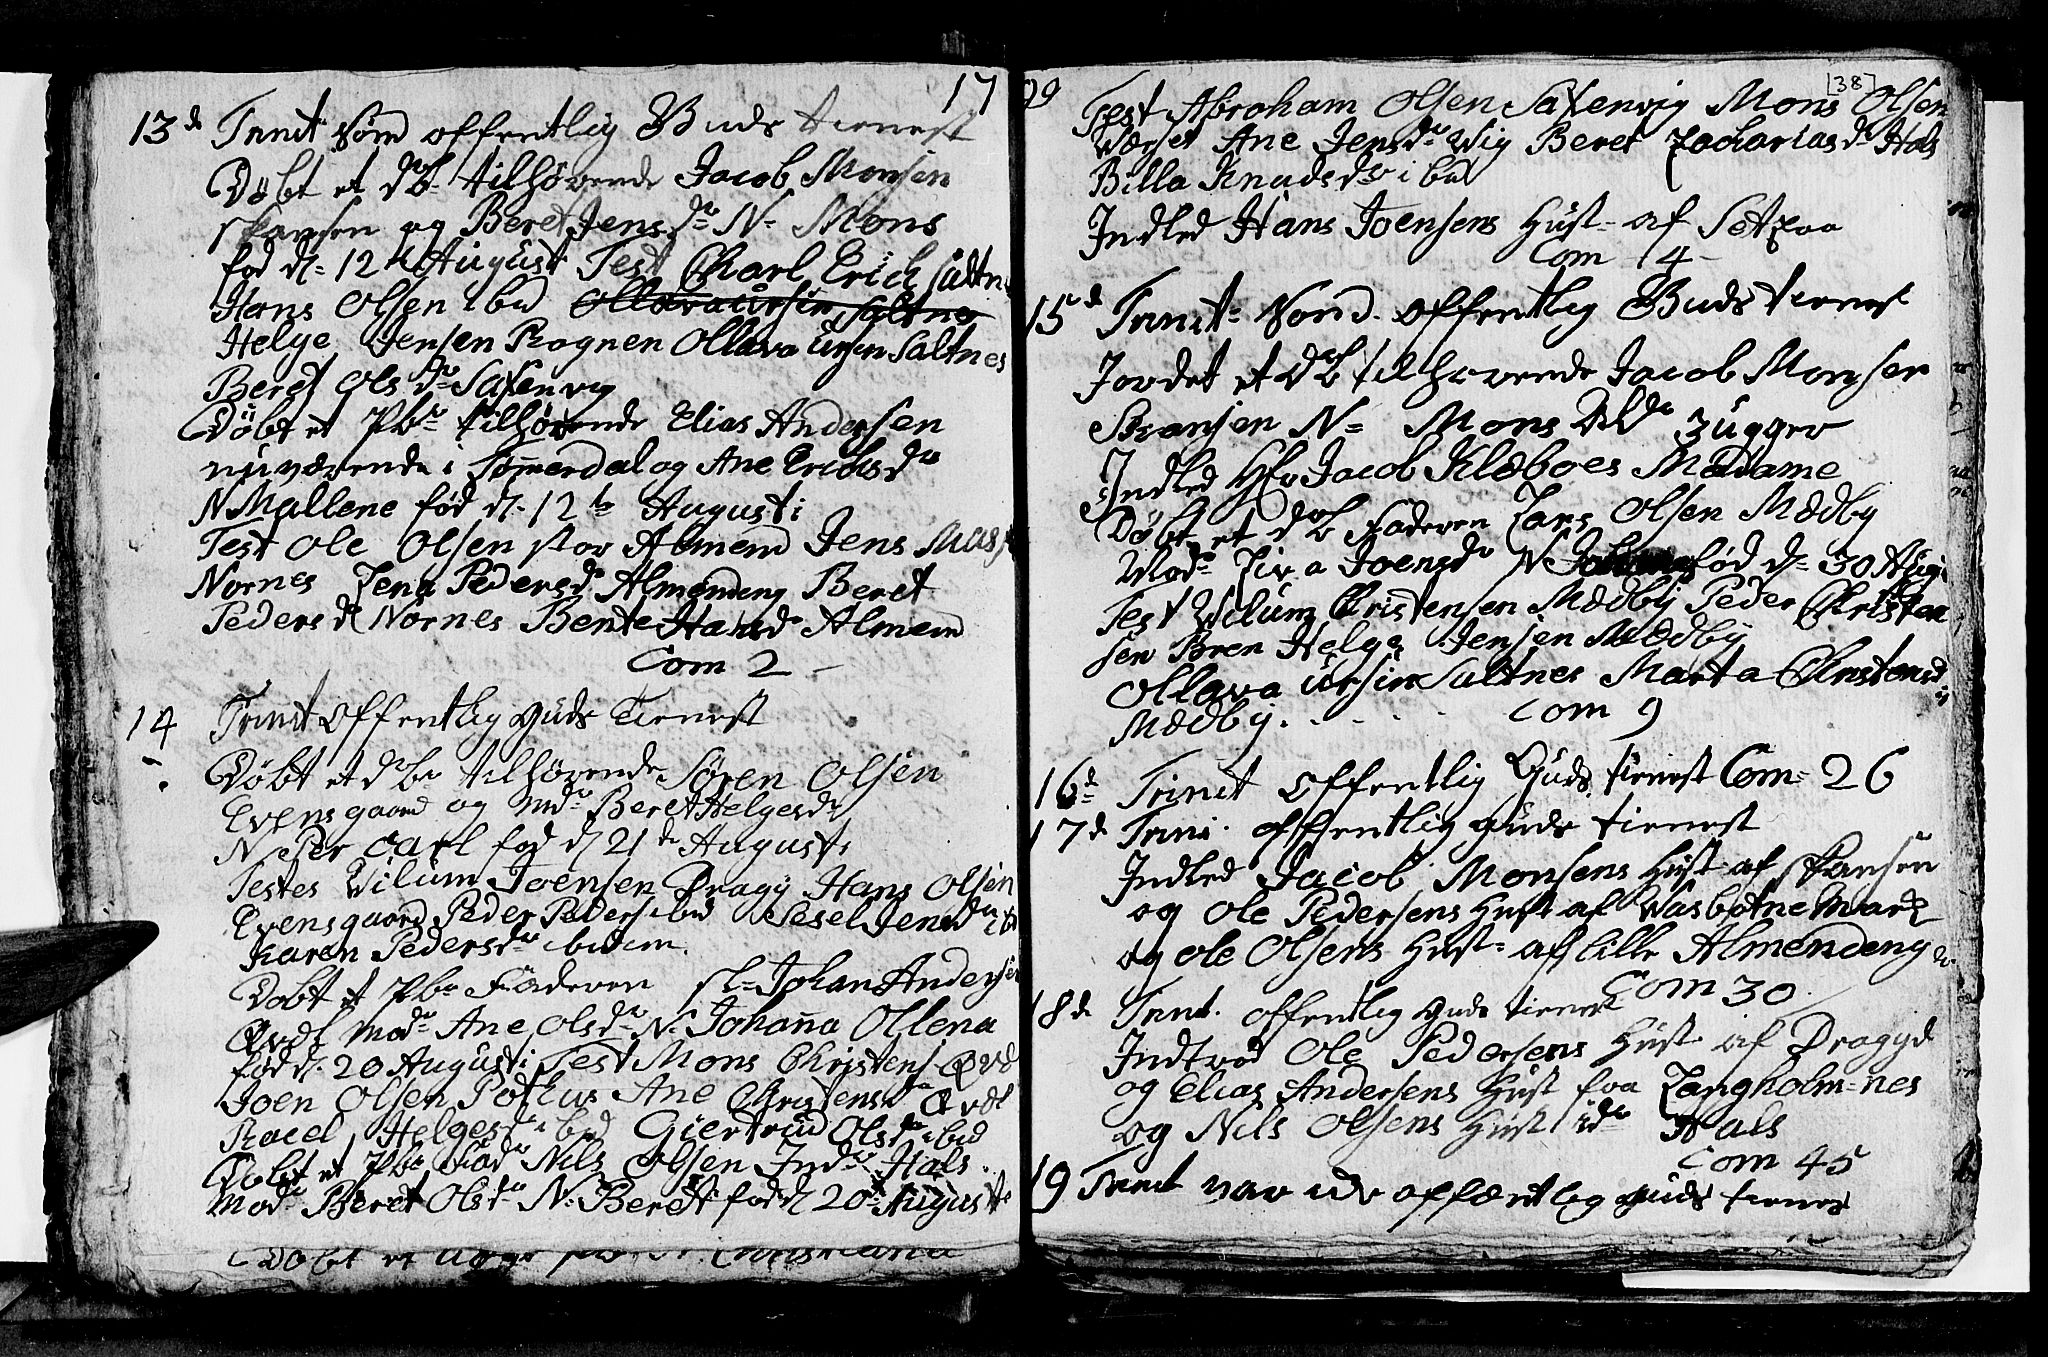 17
13de Trinit blev offentlig Guds tienest
Döbt et db. tilhörende Jacob Monsen
skansen og Beret Jens dr N. Mons
fød d. 12 August Test Charl Erich Saltnes
Hans Olsen ibid Ollava Ursin Saltnes
Helge Jensen Rognen Ollava Ursin Saltnes
Beret Ols dr Saxenvig
Döbt et Pb. tilhörende Elias Andersen
nuværende i Sömmerdal og Ane Erichs dr
N Mallene fød d. 12te Augusti
Test Ole Olsen stor Almend Jens
Nornes Lena Peders dr Almendeng Beret
Peders dr Nornes Bente Hans dr Almend
Com 2
14 Trinit offentlig Guds Tienest
Döbt et db. tilhörende Sören Olsen
Evensgaard og Beret Helges dr
N Per Carl fød d 21de Augusti
Testes Vilum Joensen Dragy Hans Olsen
Evensgaard Peder Peders ibid Sesel Jens dr ibid
Karen Peders dr ibidem.
Döbt et Pb. Faderen sl. Johan Anders
Mod. Ane Ols dr N. Johanna Ollena
fød d. 20 Augusti Test Mons Christens
Joen Olsen Ane Christens dr
Helges dr ibid Giertrud Ols dr ibid
Döbt et Pb. Fad. Nils Olsen Ind. Hals
Mod. Beret Ols dr N. Beret fød d 20 August
Döbt et Christiana
99
[38]
Test Abroham Olsen Saxenvig Mons Olsen
Ane Jens dr Wig Beret Zacharias dr Hals
Billa Knuds dr ibid
Indled Hans Joensens Hust. af Setzaa
Com 14
15de Trinit. blev offentlig Guds tienest
Jordet et db tilhörende Jacob Monsen
Skansen N. Mons Uger
Indled Hr Jacob Klæboes Madame
Döbt et db Faderen Lars Olsen Mædby
Mod. Joens dr N fød d. 30 Aug
Test Vilum Christensen Mædby Peder Christen
sen Bren Helge Jensen Mædby
Ollava Ursin Saltnes Marta Christensd
Mædby. Com 9
16de Trinit Offentlig Guds tienest Com. 26
17de Trini. offentlig Guds tienest
Indled Jacob Monsens Hust. af skansen
og Ole Pedersens Hust af Vasbotnemark
og Ole Olsens Hust. af lille Almendeng
Com 30
18de Trint. offentlig Guds tienest
Ole Pedersens Hust. af Dragyd
og Elias Andersens Hust fra Langholm-nes
og Nils Olsens Hust Hals
Com 45
19 Trinit var offentlig Guds tienest